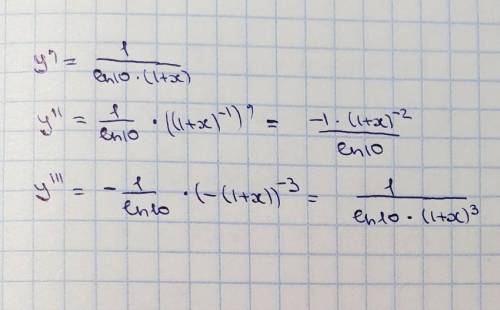 y' = 1/(ln10·(1+x))
y'' = 1/ln10 · ((1+x)^-1)' = -1·(1+x)^-2/ln10
y''' = -1/ln10 · (-(1+x))^-3 = 1/(ln10·(1+x)^3)